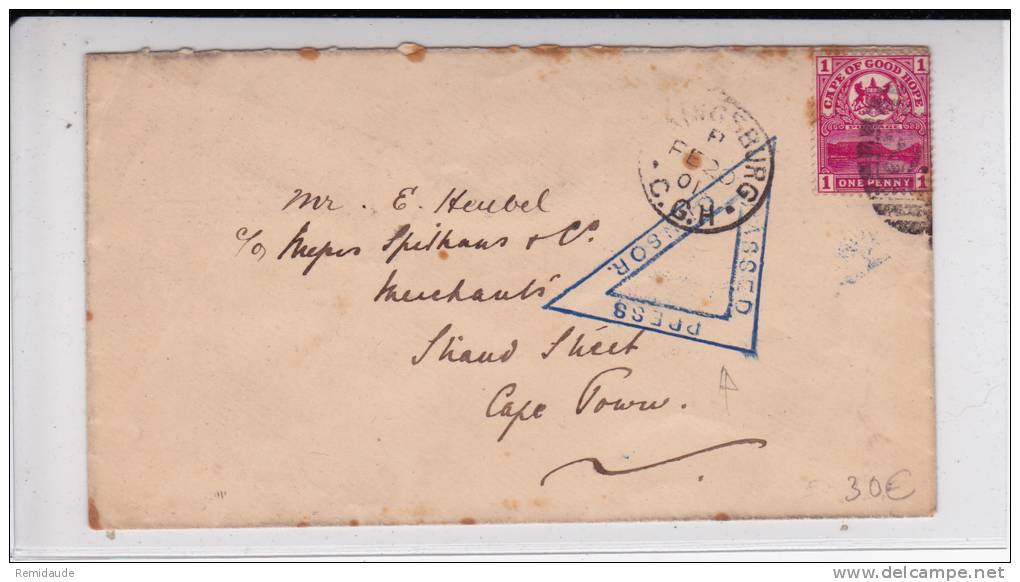 1 CAPE OF GOOD HOPE 1
POSTAGE
1 ONE PENNY 1
INGSBURG
P
FE 20
01
C.G.H.
PASSED
PRESS
CENSOR.
Mr. E. Heubel
c/o Messrs Spilhaus & Co.
Merchants
Strand Street
Cape Town.
30€
Remidaude